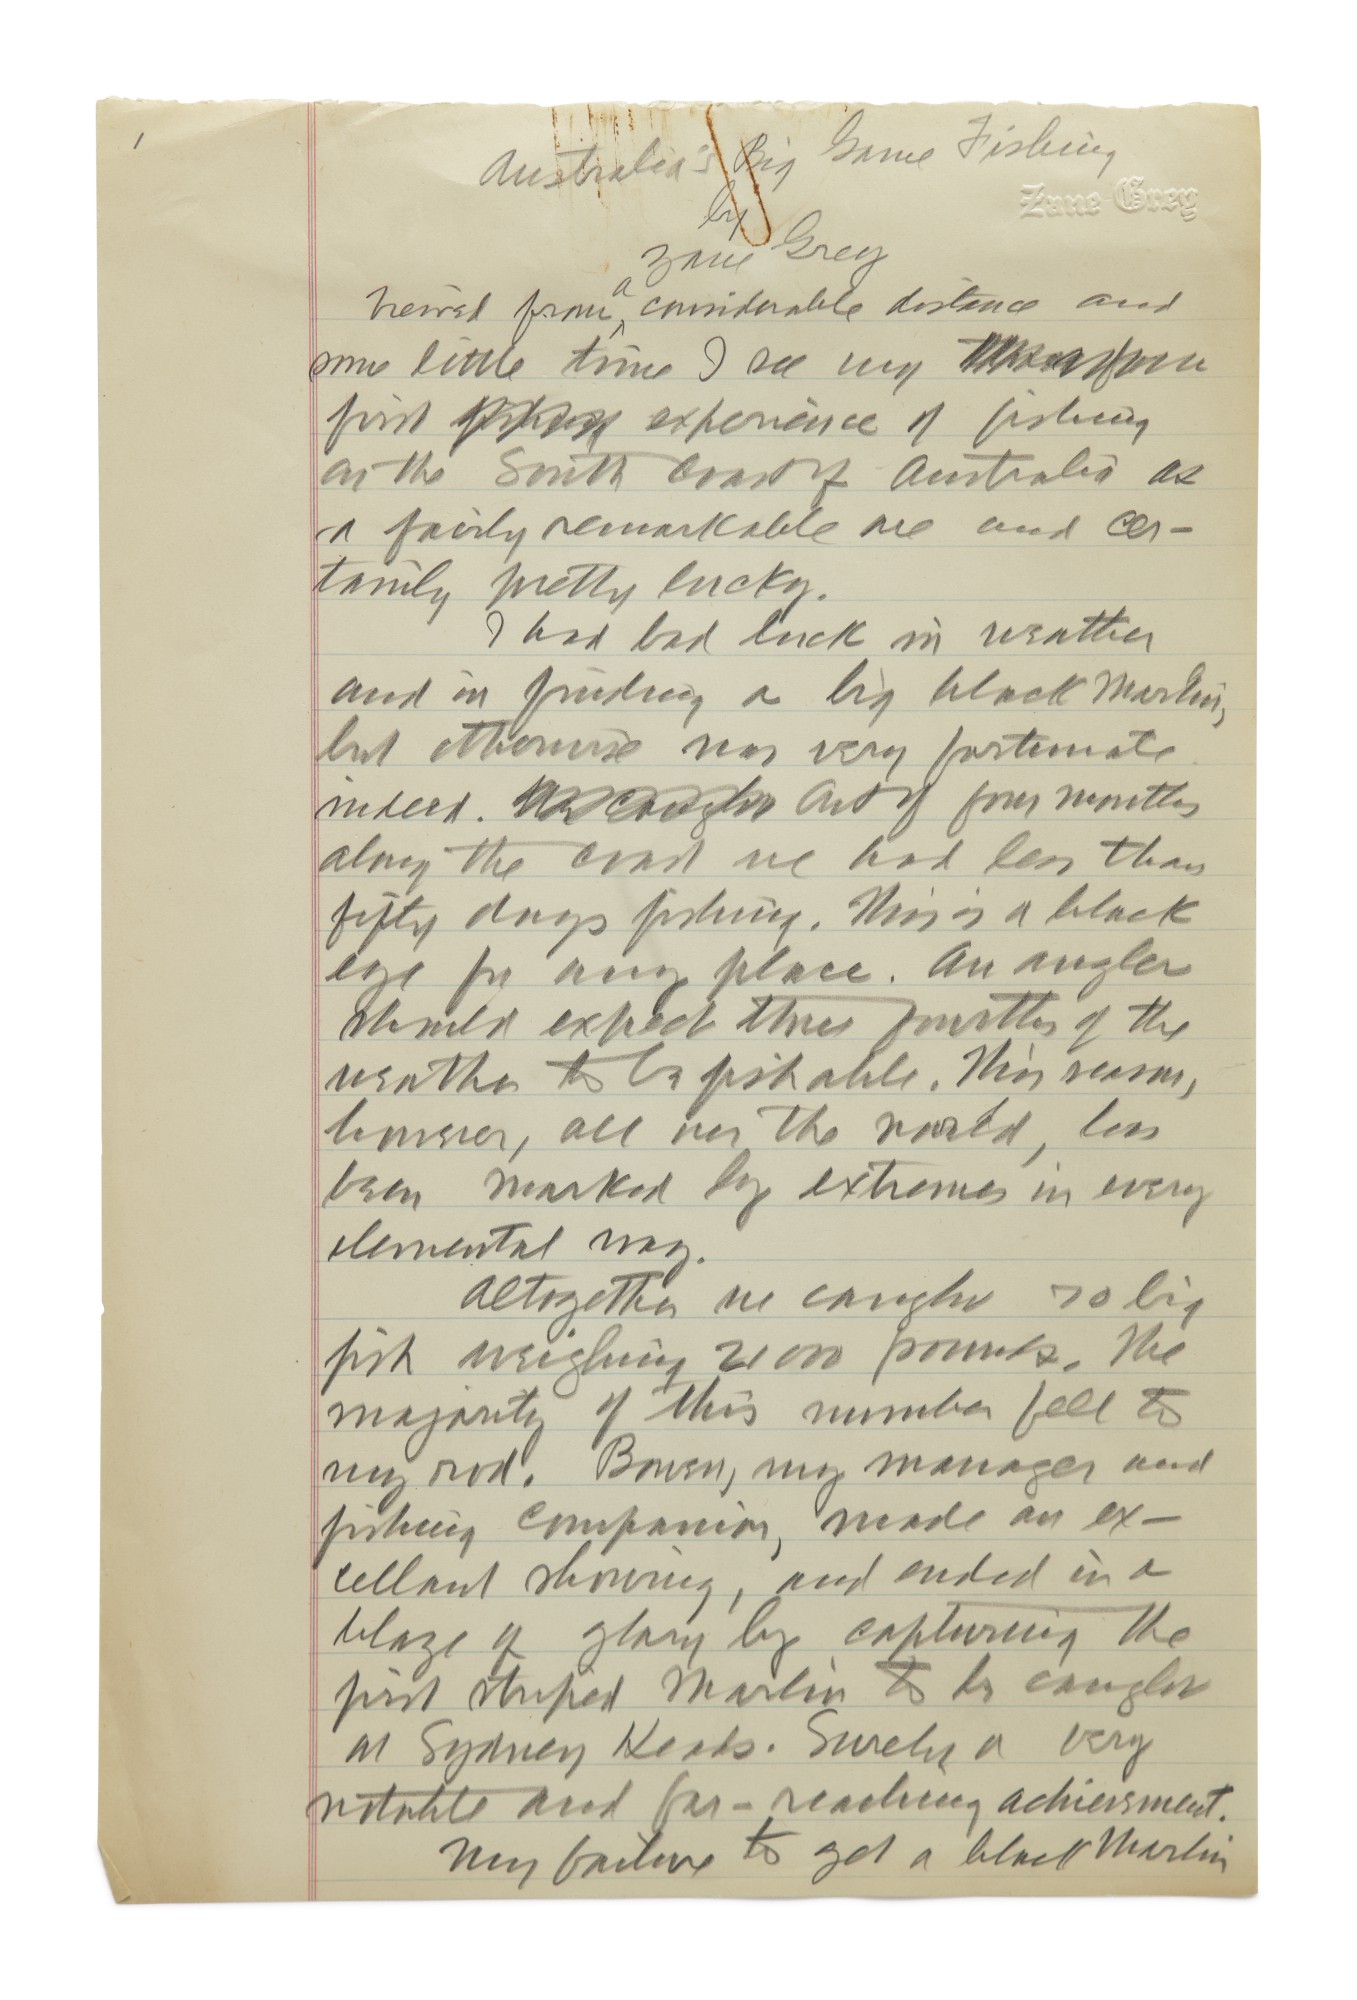 1
Australia's Big Game Fishing
Zane Grey
by
Zane Grey
Viewed from a considerable distance and
some little time I see my
first experience of fishing
on the South Coast of Australia as
a fairly remarkable one and cer-
tainly pretty lucky.
I had bad luck in weather
and in finding a big black Marlin,
but otherwise was very fortunate
indeed. Out of four months
along the coast we had less than
fifty days fishing. This is a black
eye for any place. An angler
should expect three fourths of the
weather to be fishable. This season,
however, all over the world, has
been marked by extremes in every
elemental way.
Altogether we caught big
fish weighing 21000 pounds. The
majority of this number fell to
my rod. Bowen, my manager and
fishing companion, made an ex-
cellant showing, and ended in a
blaze of glory by capturing the
first striped Marlin to be caught
at Sydney Heads. Surely a very
notable and far-reaching achievement.
My failure to get a black Marlin